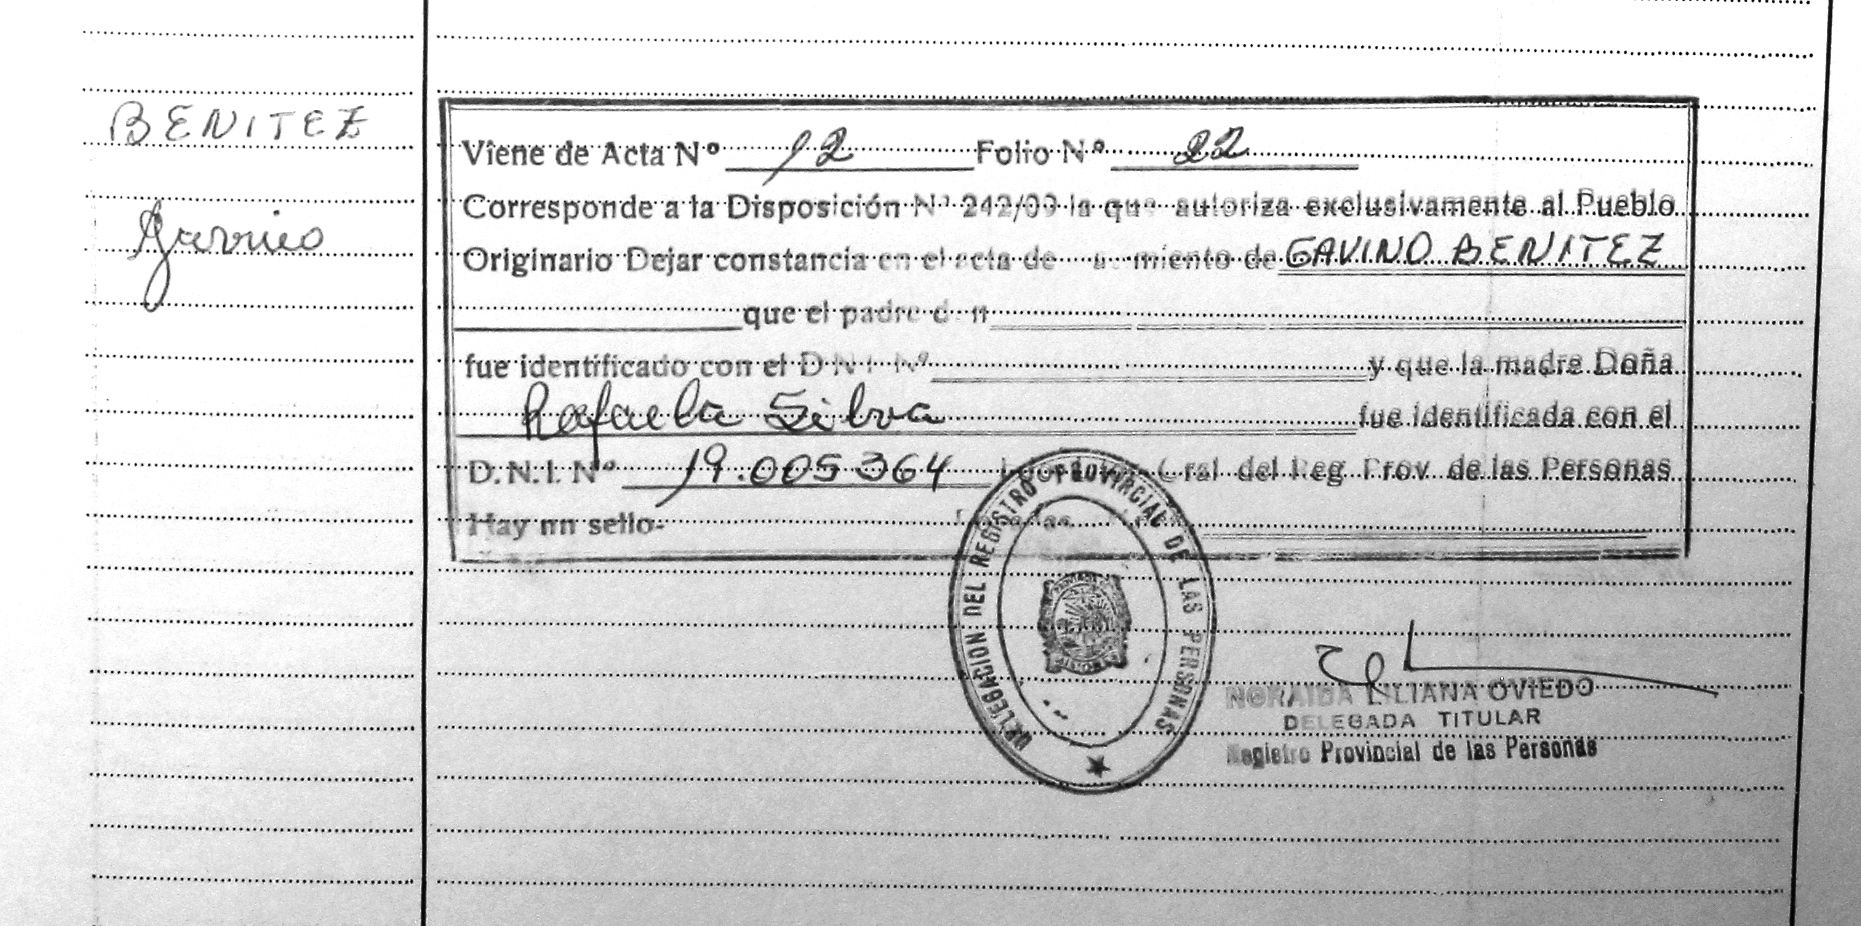 BENITEZ
Viene de Acta Nº 12 Folio Nº 22
Corresponde a la Disposición Nº 242/09 la que autoriza exclusivamente al Pueblo
Originario Dejar constancia en el acta de miento de GAVINO BENITEZ
que el padre
fue identificado con el D.N.I. Nº y que la madre Doña
Rafaela Silva fue identificada con el
D.N.I. Nº 19.005364 Gral del Reg Prov. de las Personas
Hay un sello-
DELEGACION DEL REGISTRO PROVINCIAL DE LAS PERSONAS
MISIONES
NORAIDA LILIANA OVIEDO
DELEGADA TITULAR
Registro Provincial de las Personas